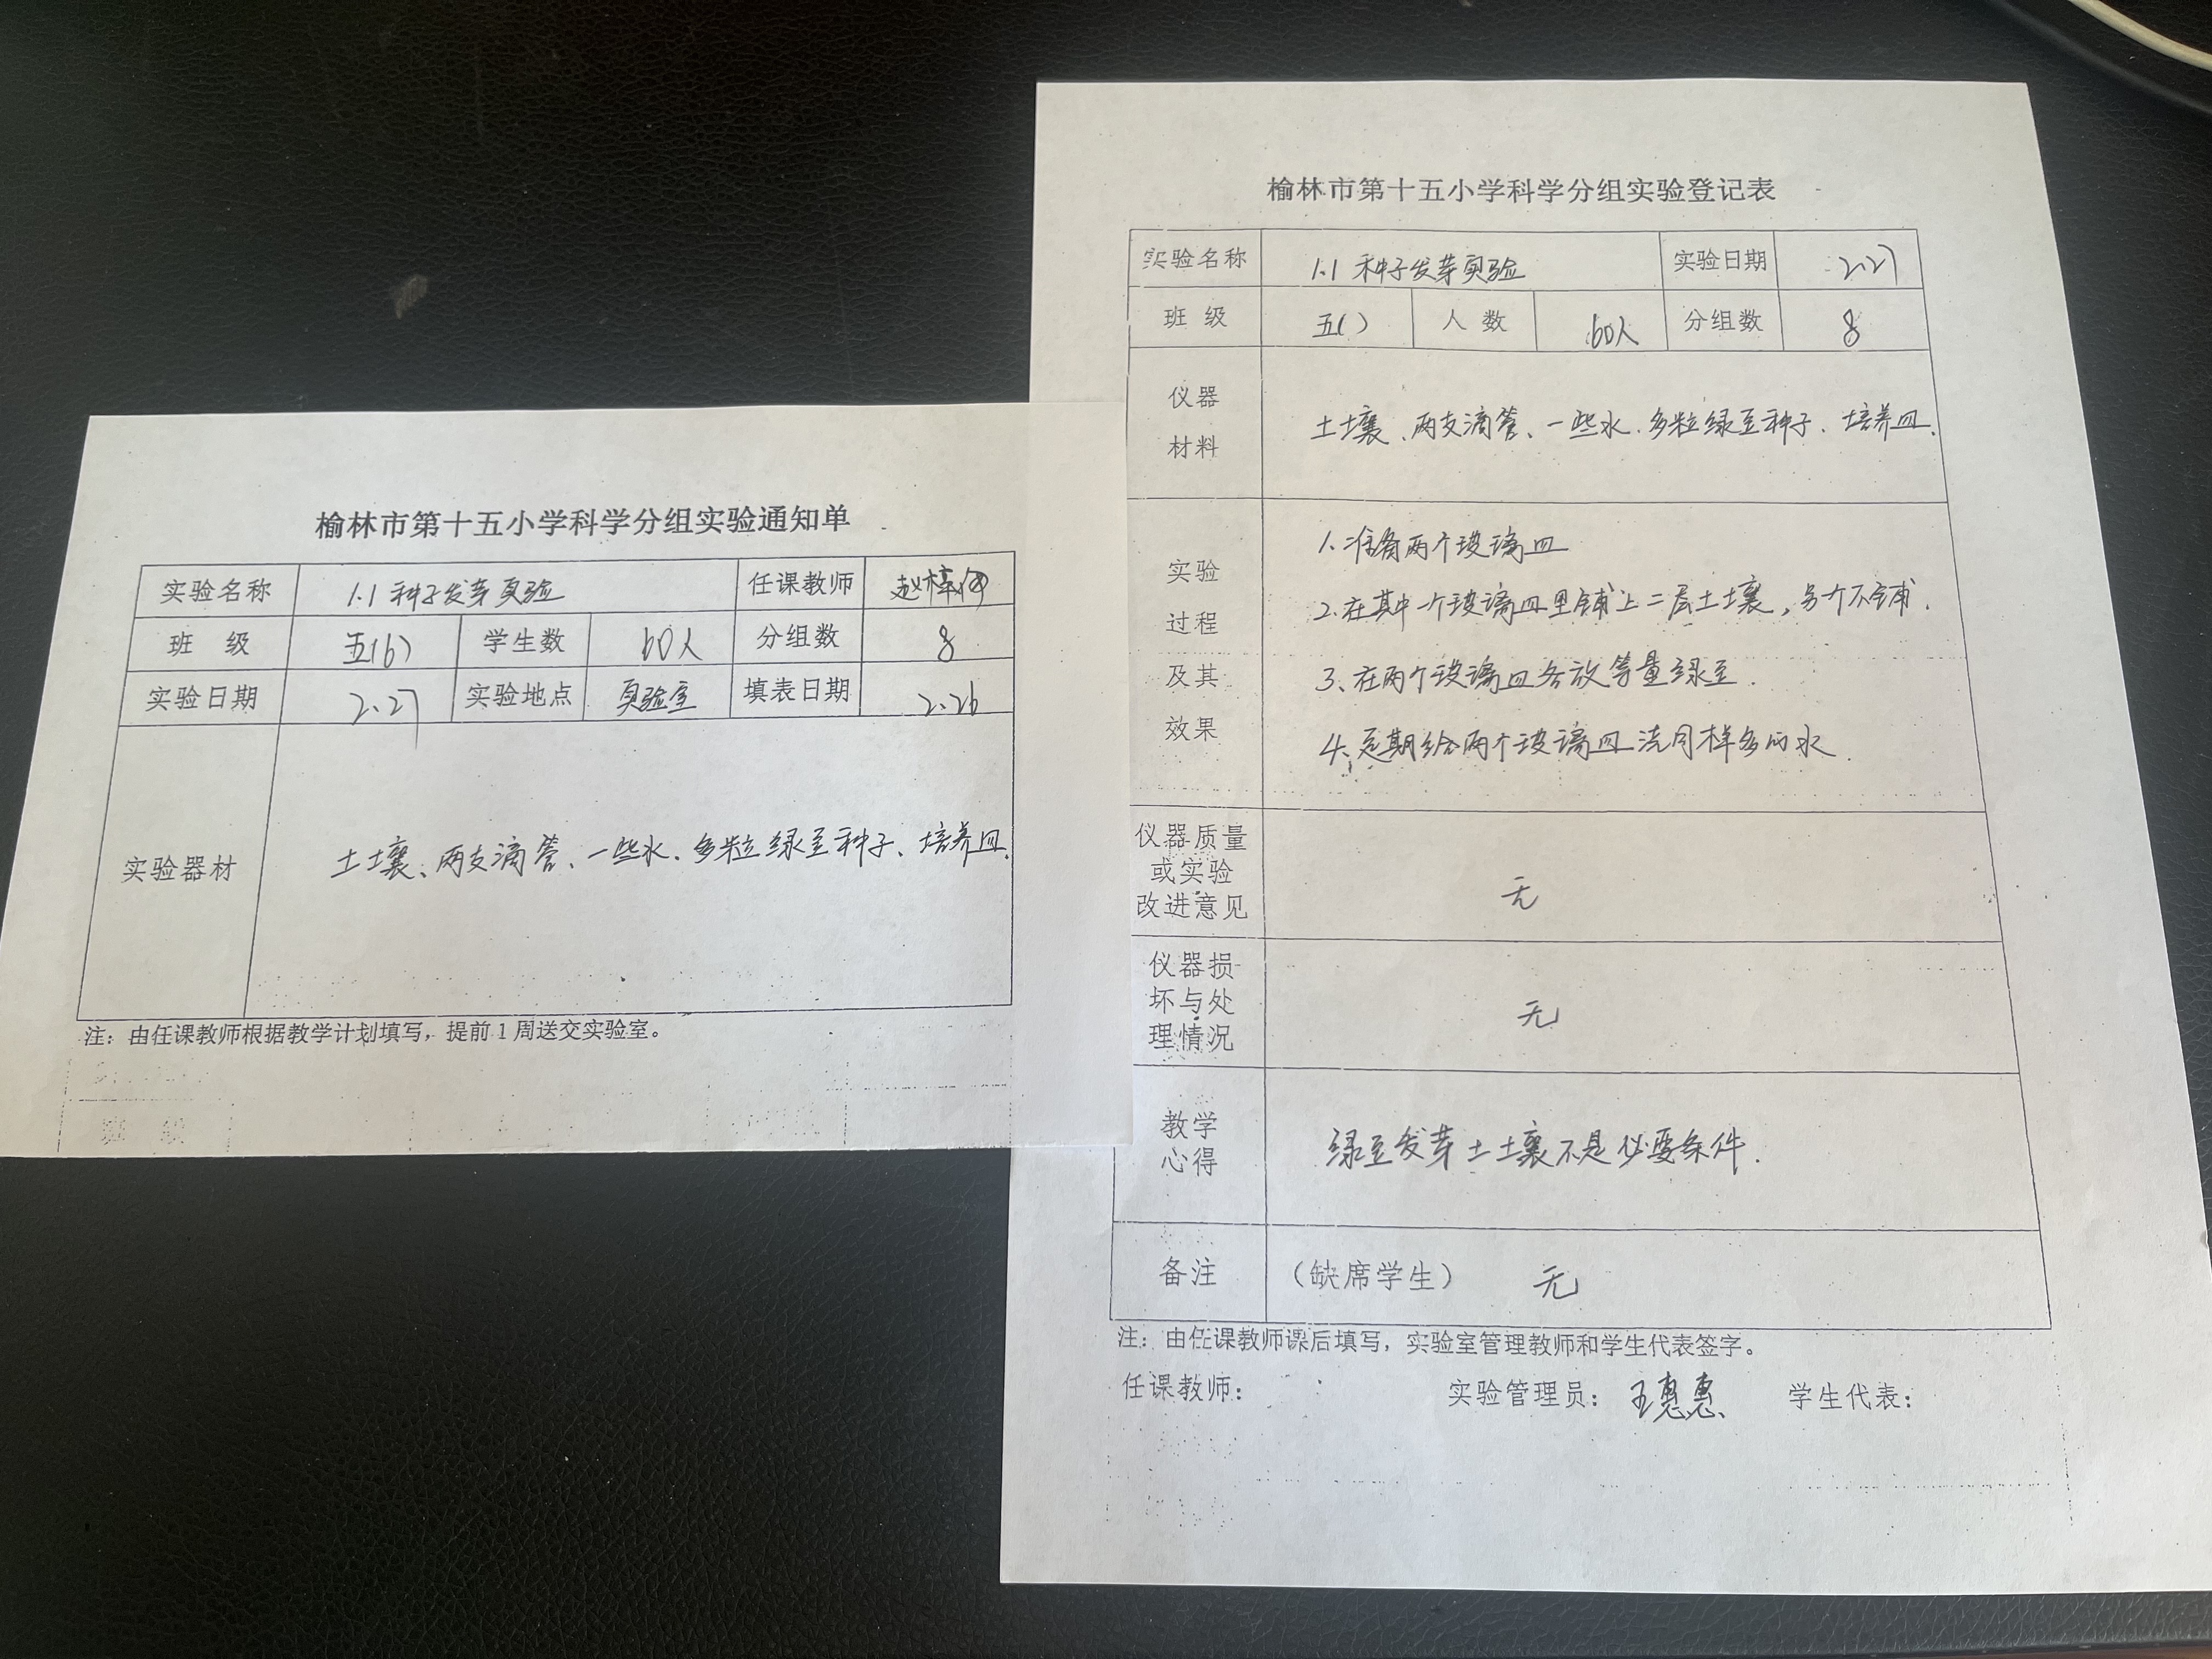 榆林市第十五小学科学分组实验通知单
实验名称 1.1 种子发芽实验 任课教师
班 级 五(6) 学生数 60人 分组数 8
实验日期 2.27 实验地点 实验室 填表日期 2.26
实验器材 土壤、两支滴管、一些水、多粒绿豆种子、培养皿.
注：由任课教师根据教学计划填写，提前1周送交实验室。
班 级
榆林市第十五小学科学分组实验登记表
实验名称 1.1 种子发芽实验 实验日期 2.27
班 级 五( ) 人 数 60人 分组数 8
仪器
材料
土壤、两支滴管、一些水、多粒绿豆种子、培养皿.
实验
过程
及其
效果
1、准备两个玻璃皿
2、在其中一个玻璃皿里铺上二层土壤，另个不铺.
3、在两个玻璃皿各放等量绿豆.
4、定期给两个玻璃皿浇同样多的水.
仪器质量
或实验
改进意见
无
仪器损
坏与处
理情况
无
教学
心得
绿豆发芽土壤不是必要条件.
备注 （缺席学生） 无
注：由任课教师课后填写，实验室管理教师和学生代表签字。
任课教师： 实验管理员：王惠惠 学生代表：